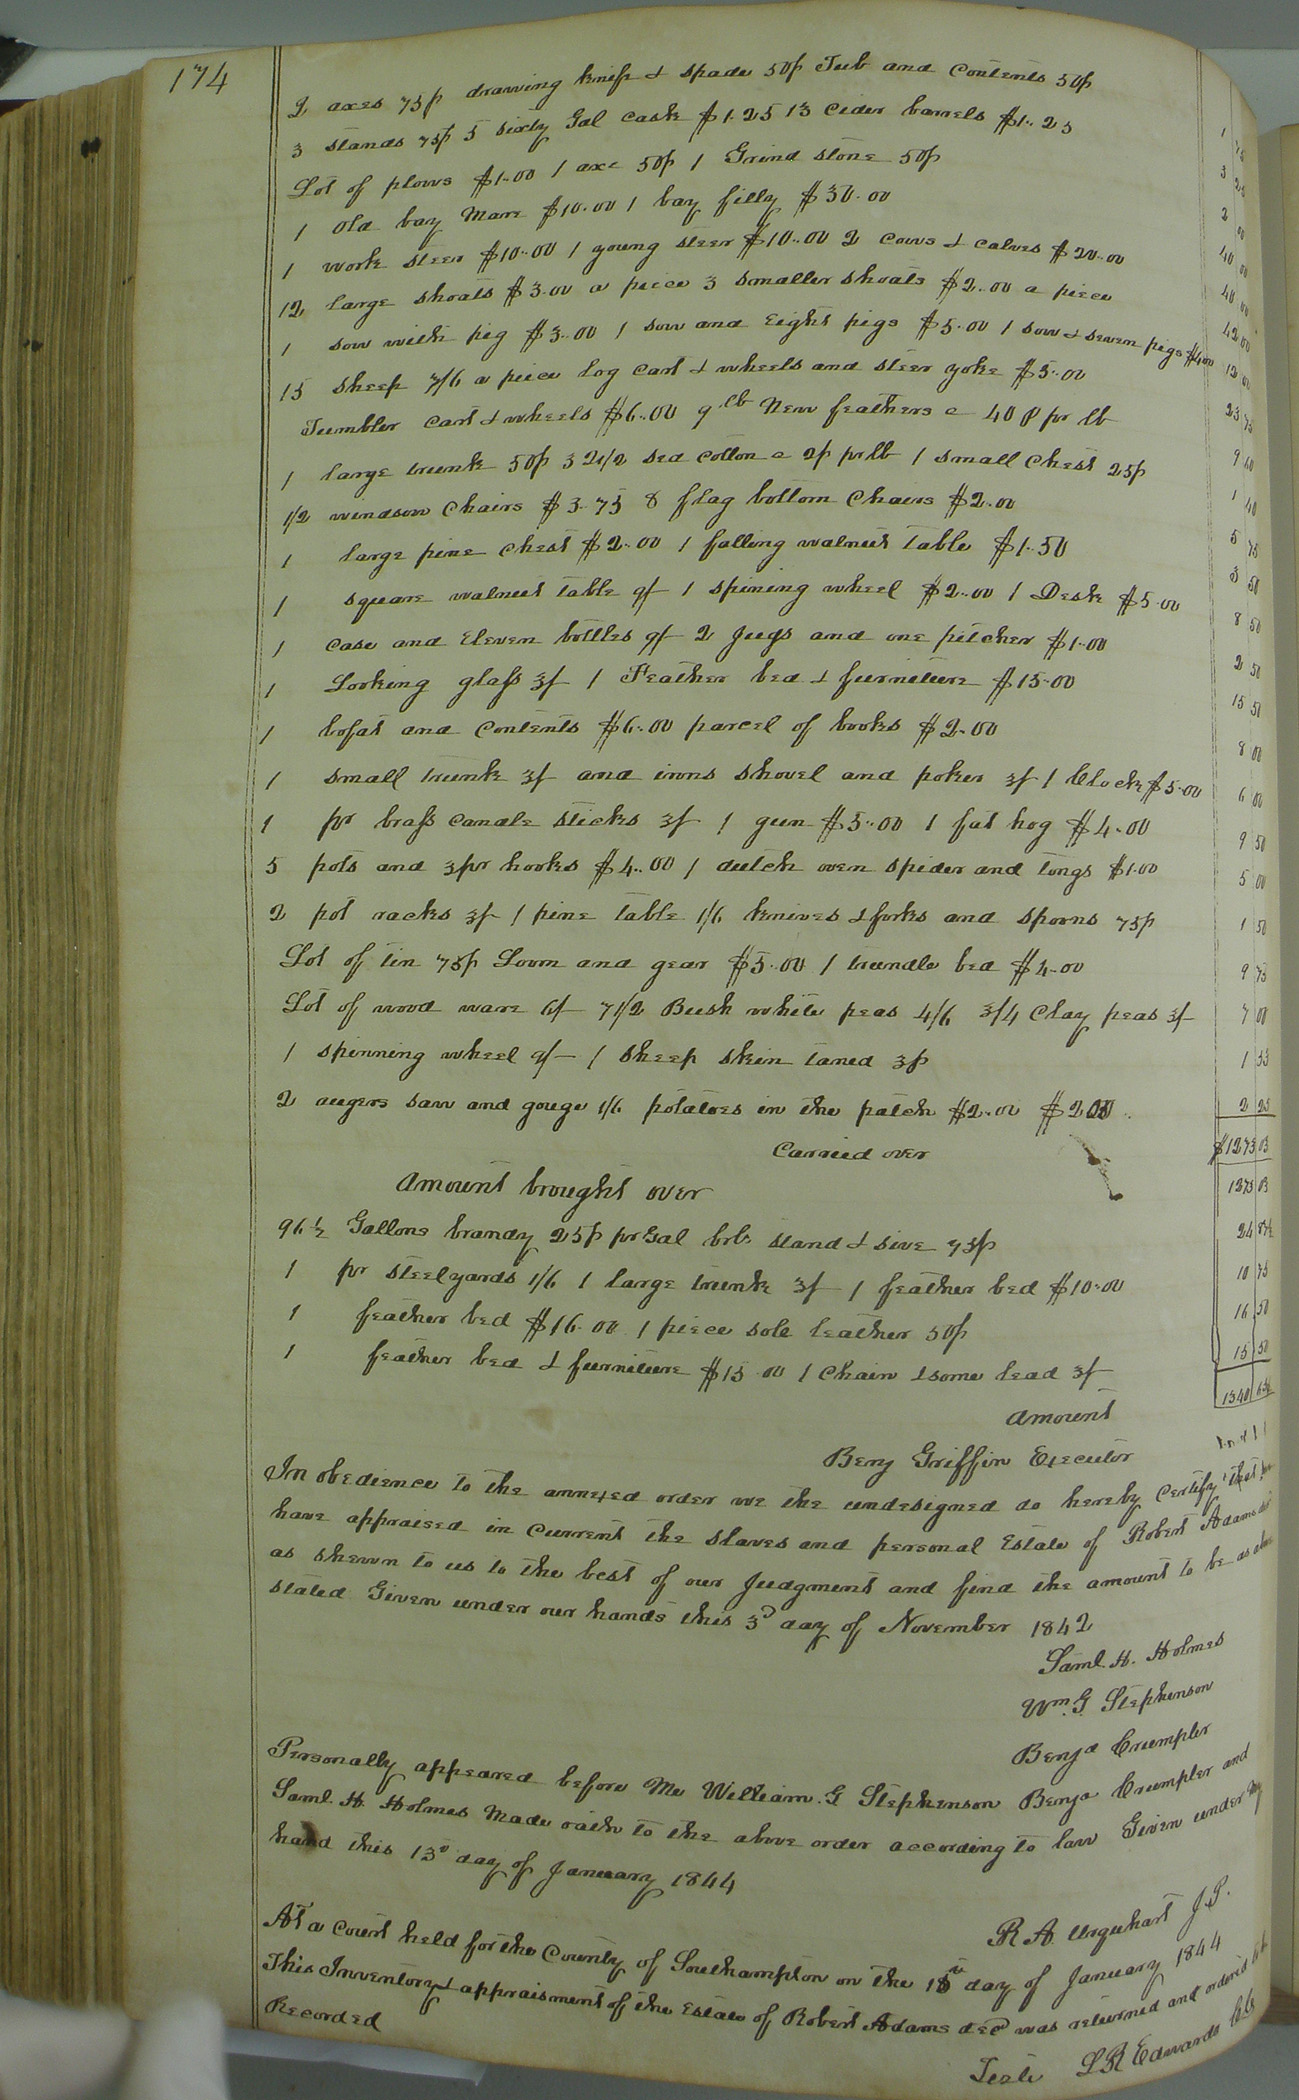 174
2 axes 75p drawing knife & spade 50p Tub and Contents 50p 1 75
3 stands 75p 5 sixty Gal Cask $1.25 13 Cider barrels $1..25 3 25
Lot of plows $1-00 1 axe 50p 1 Grind stone 50p 2 00
1 old bay Mare $10.00 1 bay filly $30.00 40 00
1 work steer $10..00 1 young steer $10..00 2 Cows & calves $20..00 40 00
12 large shoats $3.00 a piece 3 smaller shoats $2..00 a piece 42 00
1 sow with pig $3..00 1 sow and Eight pigs $5.00 1 sow & seven pigs $4.00 12 00
15 sheep 7/6 a piece log cart & wheels and steer yoke $5..00 23 75
Tumbler Cart & wheels $6..00 9 lb New feathers @ 40 p pr lb 9 60
1 large trunk 50p 32 1/2 sed Cotton @ 2p pr lb 1 small Chest 25p 1 40
1/2 windsow Chairs $3.75 8 flag bottom Chairs $2.00 5 75
1 large pine Chest $2..00 1 falling walnut table $1..50 3 50
1 square walnut table 9/ 1 spining wheel $2..00 1 Desk $5.00 8 50
1 case and Eleven bottles 9/ 2 Jugs and one pitcher $1.00 2 50
1 Looking glass 3/ 1 Feather bed & furniture $15.00 15 50
1 bofat and Contents $6..00 parcel of books $2.00 8 00
1 small trunk 3/ and irons shovel and poker 3/ 1 Clock $5.00 6 00
1 pr brass Candle sticks 3/ 1 gun $5..00 1 fat hog $4.00 9 50
5 pots and 3 pr hooks $4..00 1 dutch oven spider and tongs $1.00 5 00
2 pot racks 3/ 1 pine table 1/6 knives & forks and spoons 75p 1 50
Lot of tin 75p Loom and gear $5..00 1 trundle bed $4.00 9 75
Lot of wood ware 6/ 7 1/2 Bush white peas 4/6 3/4 Clay peas 3/ 7 00
1 spinning wheel 9/ 1 sheep skin taned 3p 1 53
2 augers saw and gouge 1/6 potatoes in the patch $2.00 2 25
Carried over $1273 03
Amount brought over 1273 03
96 1/2 Gallons brandy 25p pr Gal brls stand & sive 75p 24 87 1/2
1 pr steelyards 1/6 1 large trunk 3/ 1 feather bed $10.00 10 75
1 feather bed $16.00 1 piece sole leather 50p 16 50
1 feather bed & furniture $15.00 1 Chain & some lead 3/ 15 50
Amount 1340 65 1/2
Benj Griffin Executor
In obedience to the annexed order we the undesigned do hereby Certify that we
have appraised in Current the slaves and personal Estate of Robert Adams decd
as shewn to us to the best of our Judgment and find the amount to be as above
stated Given under our hands this 3d day of November 1842
Saml. H. Holmes
Wm. G Stephenson
Benja Crumpler
Personally appeared before Me William. G Stephenson Benja Crumpler and
Saml. H. Holmes Made oath to the above order according to law Given under my
hand this 13th day of January 1844
R A Urquhart J.P.
At a Court held for the County of Southampton on the 15th day of January 1844
This Inventory & appraisment of the Estate of Robert Adams decd was returned and ordered to be
Recorded
Teste L R Edwards Clk